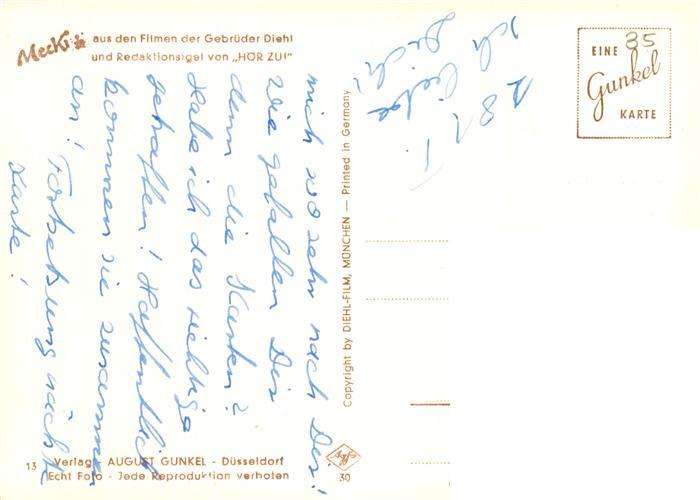 Mecki aus den Filmen der Gebrüder Diehl
und Redaktionsigel von „HÖR ZU!"
Ich liebe
Dich!
281T.
EINE 35
Gunkel
KARTE
mich so sehr nach Dir!
Wie gefallen Dir
denn die Karten?
Habe ich das richtige
getroffen! Hoffentlich
kommen sie zusammen
an! Fortsetzung nächste
Karte!
Copyright by DIEHL-FILM, MÜNCHEN — Printed in Germany
13 Verlag AUGUST GUNKEL - Düsseldorf
Echt Foto - Jede Reproduktion verboten
Agfa
30